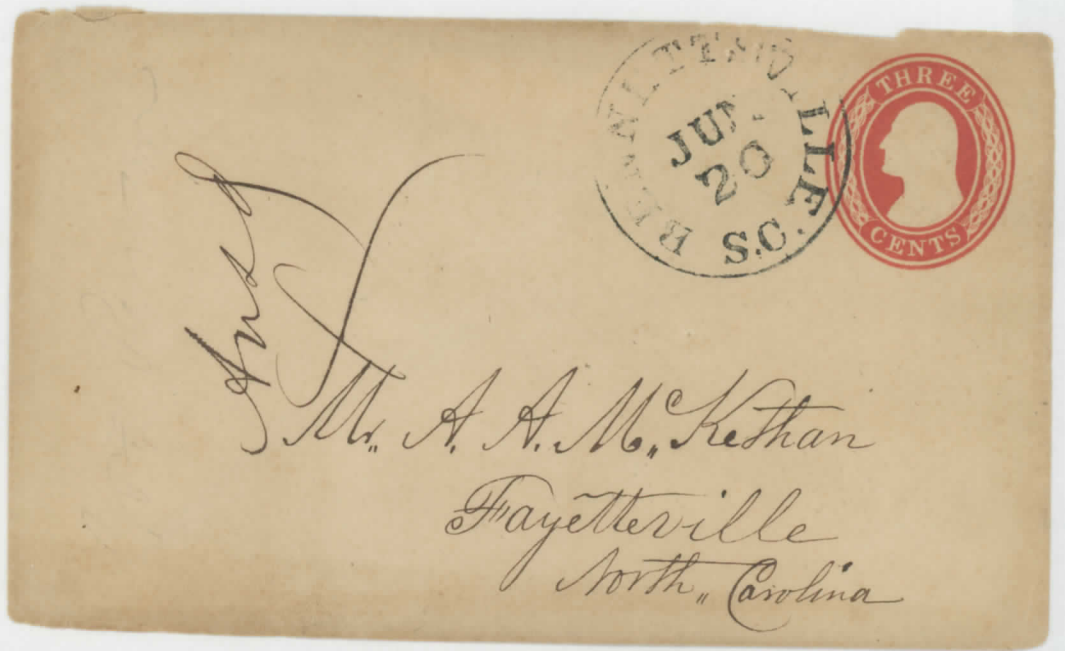 BENNETTSVILLE
JUN
20
S.C.
THREE
CENTS
Ansd
Mr. A. A. McKethan
Fayetteville
North Carolina